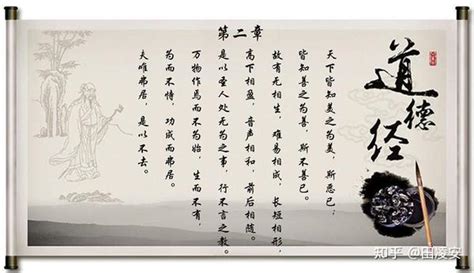 道德经
第二章
天下皆知美之为美，斯恶已；
皆知善之为善，斯不善已。
故有无相生，难易相成，长短相形，
高下相盈，音声相和，前后相随。
是以圣人处无为之事，行不言之教。
万物作焉而不为始，生而不有，
为而不恃，功成而弗居。
夫唯弗居，是以不去。
知乎 @田凌安